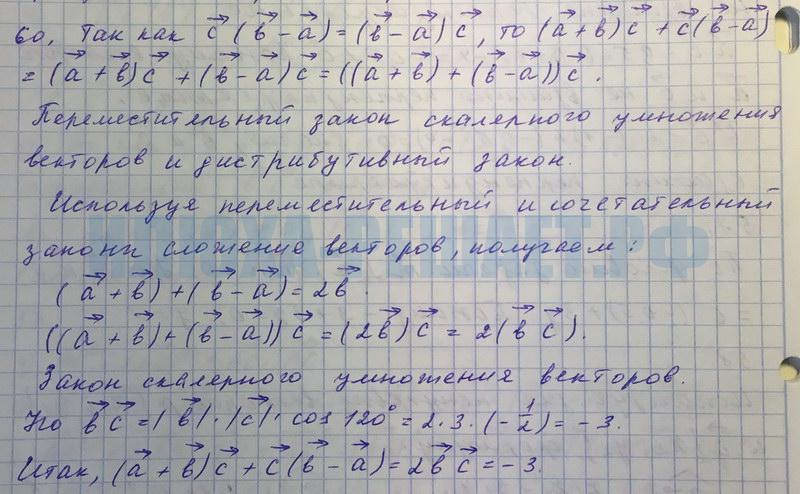 60, Так как c⃗ (b⃗ − a⃗) = (b⃗ − a⃗) c⃗, то (a⃗ + b⃗) c⃗ + c⃗ (b⃗ − a⃗)
= (a⃗ + b⃗) c⃗ + (b⃗ − a⃗) c⃗ = ((a⃗ + b⃗) + (b⃗ − a⃗)) c⃗.
Переместительный закон скалерного умножения
векторов и дистрибутивный закон.
Используя переместительный и сочетательный
законы сложение векторов, получаем:
(a⃗ + b⃗) + (b⃗ − a⃗) = 2b⃗.
((a⃗ + b⃗) + (b⃗ − a⃗)) c⃗ = (2b⃗) c⃗ = 2(b⃗ c⃗).
Закон скалерного умножения векторов.
Но b⃗ c⃗ = |b⃗| · |c⃗| · cos 120° = 2 · 3 · (−1/2) = −3.
Итак, (a⃗ + b⃗) c⃗ + c⃗ (b⃗ − a⃗) = 2b⃗ c⃗ = −3.